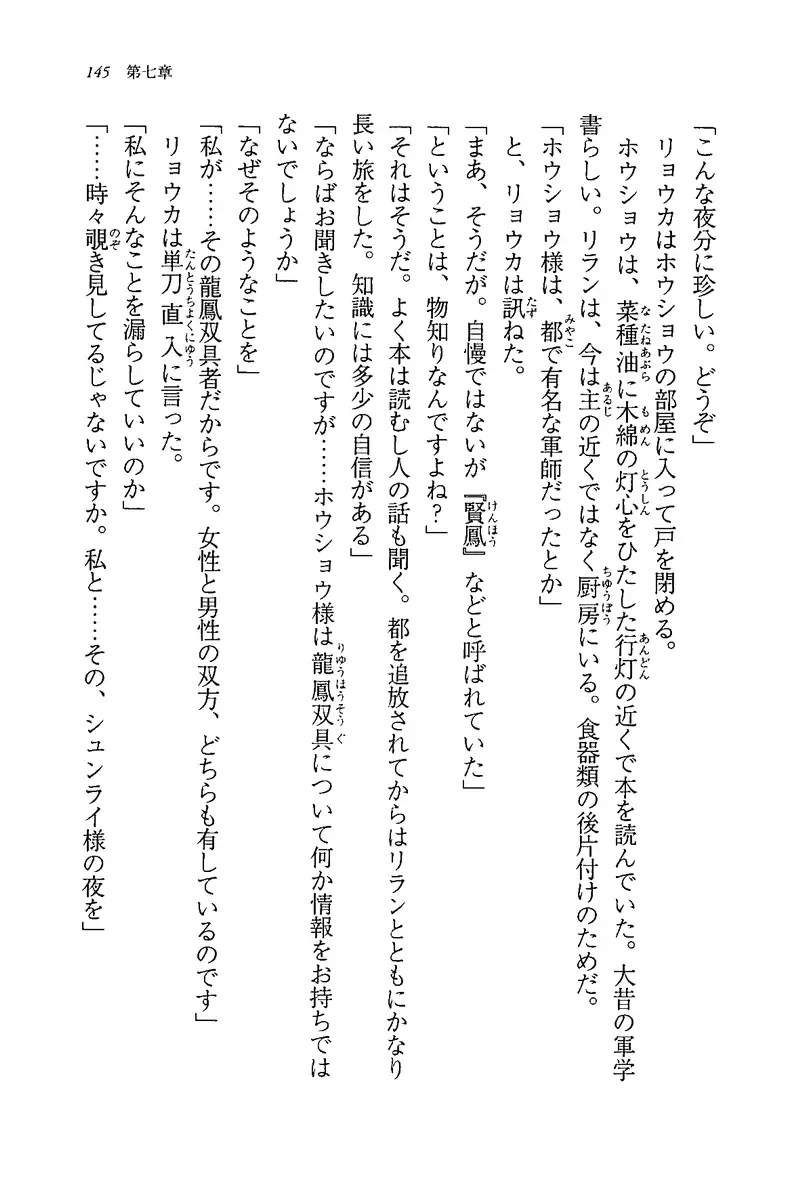 145　第七章
「こんな夜分に珍しい。どうぞ」
リョウカはホウショウの部屋に入って戸を閉める。
ホウショウは、菜種油に木綿の灯心をひたした行灯の近くで本を読んでいた。大昔の軍学
書らしい。リランは、今は主の近くではなく厨房にいる。食器類の後片付けのためだ。
「ホウショウ様は、都で有名な軍師だったとか」
と、リョウカは訊ねた。
「まあ、そうだが。自慢ではないが『賢鳳』などと呼ばれていた」
「ということは、物知りなんですよね？」
「それはそうだ。よく本は読むし人の話も聞く。都を追放されてからはリランとともにかなり
長い旅をした。知識には多少の自信がある」
「ならばお聞きしたいのですが……ホウショウ様は龍鳳双具について何か情報をお持ちでは
ないでしょうか」
「なぜそのようなことを」
「私が……その龍鳳双具者だからです。女性と男性の双方、どちらも有しているのです」
リョウカは単刀直入に言った。
「私にそんなことを漏らしていいのか」
「……時々覗き見してるじゃないですか。私と……その、シュンライ様の夜を」